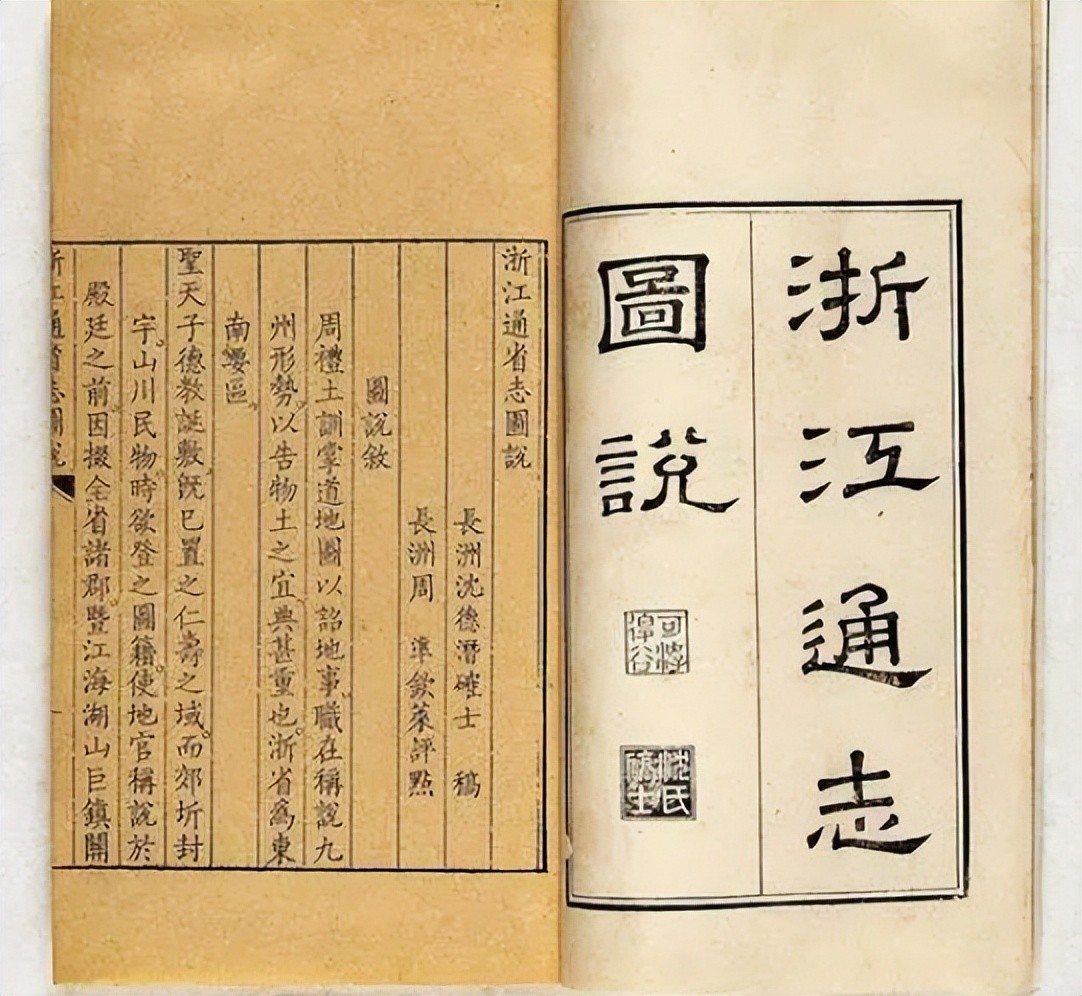 浙江通志
圖說
沈氏
確士
浙江通省志圖說
長洲沈德潛確士 稿
長洲周 準欽萊評點
圖說敘
周禮土訓掌道地圖以詔地事職在稱說九
州形勢以告物土之宜典甚重也浙省為東
南要區
聖天子德教誕敷既已置之仁壽之域而郊圻封
宇山川民物時欲登之圖籍使地官稱說於
殿廷之前因掇全省諸郡暨江海湖山巨鎮關
浙江通省志圖說